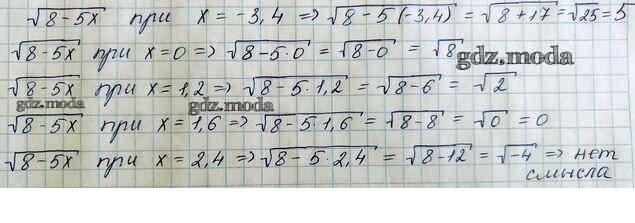 √8-5x при x = -3,4 => √8-5(-3,4) = √8+17 = √25 = 5
√8-5x при x=0 => √8-5·0 = √8-0 = √8
gdz.moda
√8-5x при x=1,2 => √8-5·1,2 = √8-6 = √2
gdz.moda gdz.moda
√8-5x при x=1,6 => √8-5·1,6 = √8-8 = √0 = 0
√8-5x при x = 2,4 => √8-5·2,4 = √8-12 = √-4 => нет
смысла